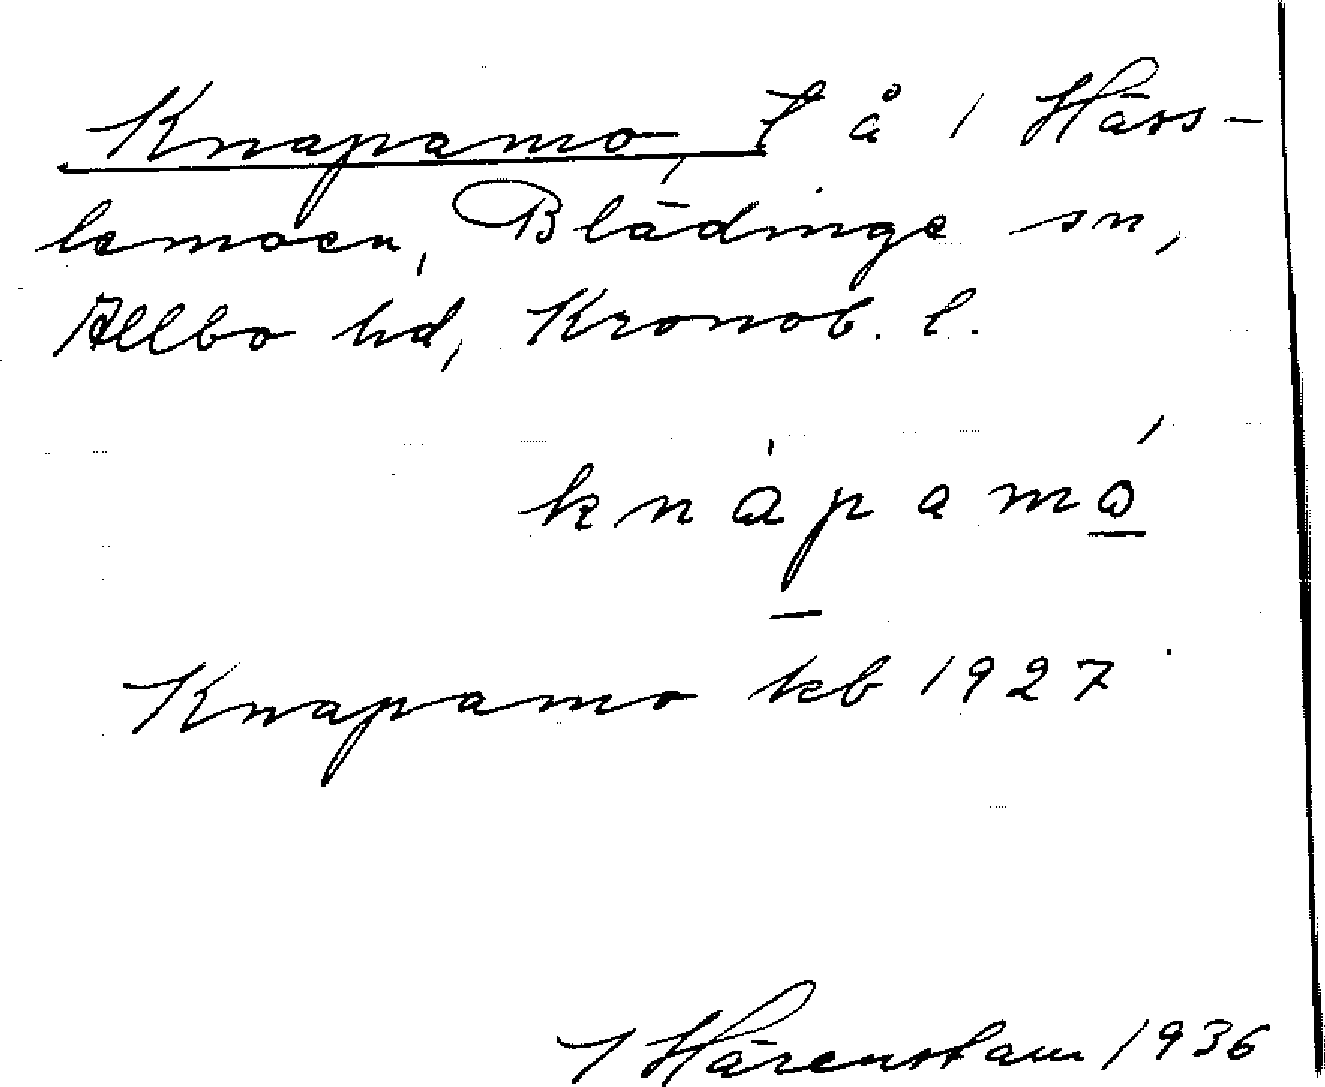 Knapamo, t å 1 Häss-
lemoen, Blädinge sn,
Allbo hd, Kronob. l.
knapamo
Knapamo kb 1927
Härenstam 1936